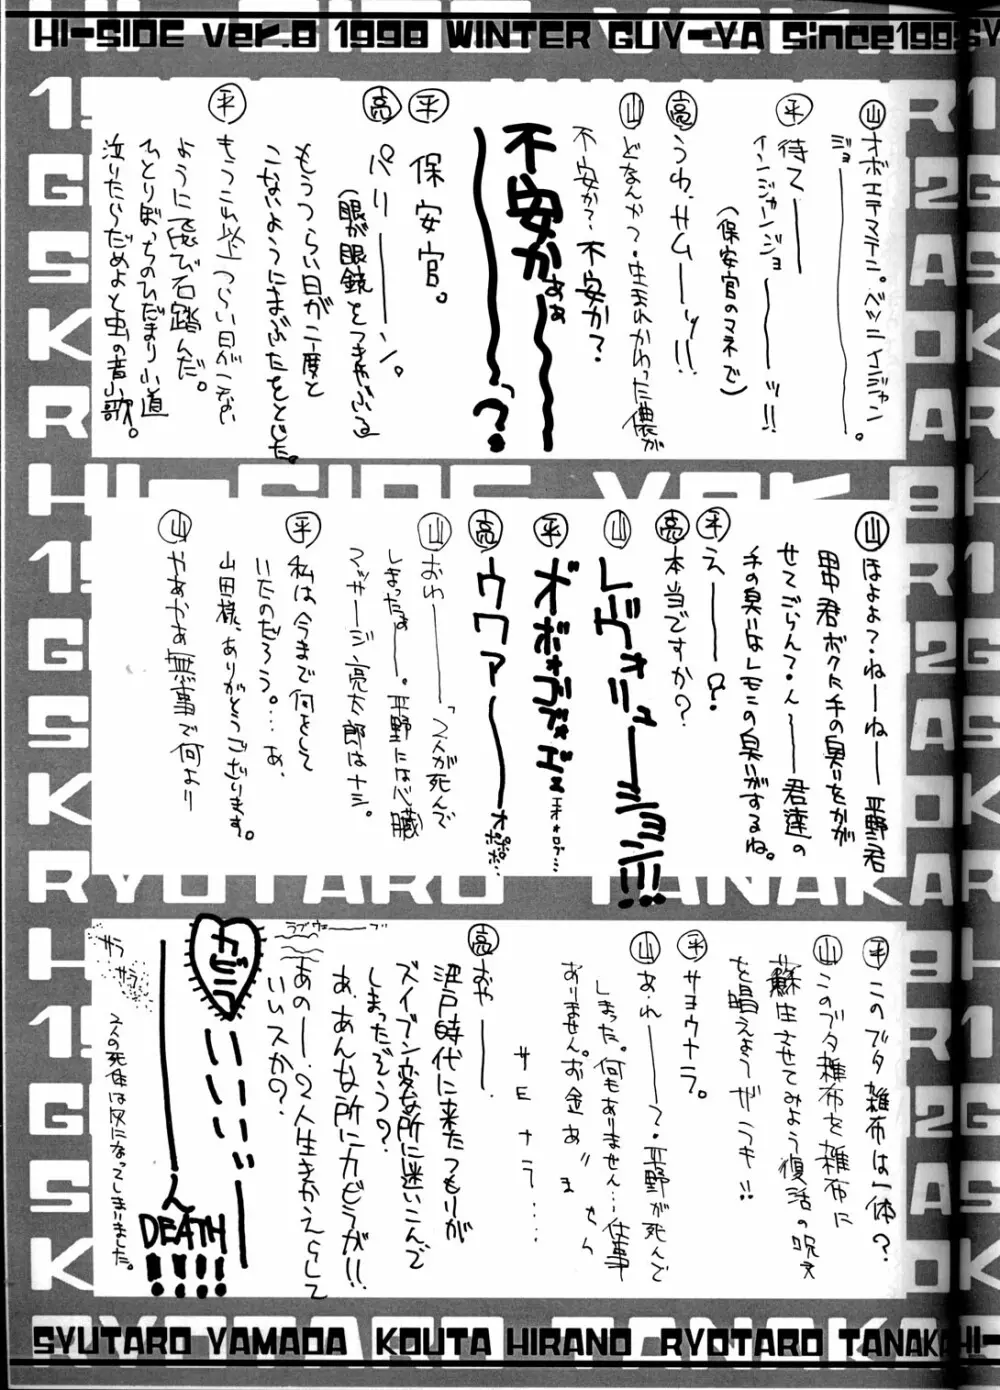 HI-SIDE ver.8 1998 WINTER GUY-YA Since199
山 オボエテマテニ。ベツニイイジャン
ジョ――――。
平 待て――
インジャーンジョ――――ッ!!
(保安官のマネで)
亮 うわ、サム――ッ!!
山 どなんか?・生まれかわった儂が
不安か?不安か?
不安かぁぁ〜〜〜
〜〜〜っ?
平 保安官。
亮 パリ――――ン。
(眼が眼鏡をつきやぶる)
もうつらい日が二度と
こないようにまぶたをとじた。
平 もうこれ以上つらい日がこない
ように飛び石踏んだ。
ひとりぼっちのひだまり小道
泣いたらだめよと虫の音小歌。
山 ほよよ?・ねーねー 平野君
田中君ボクに手の臭いをかが
せてごらん?・ん――君達の
手の臭いはレモンの臭いがするね。
平 え――?
亮 本当ですか?
山 レヴォリューーション!!!
平 オボォヴォエェ
オォロロ…
亮 ウワァ――――オポポポポ…
山 おわ――――「2人が死んで
しまったぁ――。平野には心臓
マッサージ、亮太郎はナシ。
平 私は今まで何をして
いたのだろう。…あ、
山田様、ありがとうございます。
山 やあやあ無事で何より
平 このブタ雑布は一体?
山 このブタ雑布を雑布に
蘇生させてみよう復活の呪文
を唱えようがラキ!!
平 サヨウナラ。
山 あ、れ――――?・平野が死んで
しまった。何もありません…仕事
ありません。お金あ"ませら
サエナラ・・・・
亮 おや――――.
江戸時代に来たつもりが
ズイブン変な所に迷いこんで
しまったぞう?
あ、あんな所にカビラが!!
あのー、2人生きかえらして
いいスか?
ラブウェーーブ
カビラ
――――ん
DEATH
!!!!
サラ サラ
2人の死体は灰になってしまいました。
SYUTARO YAMADA KOUTA HIRANO RYOTARO TANAKA HI-